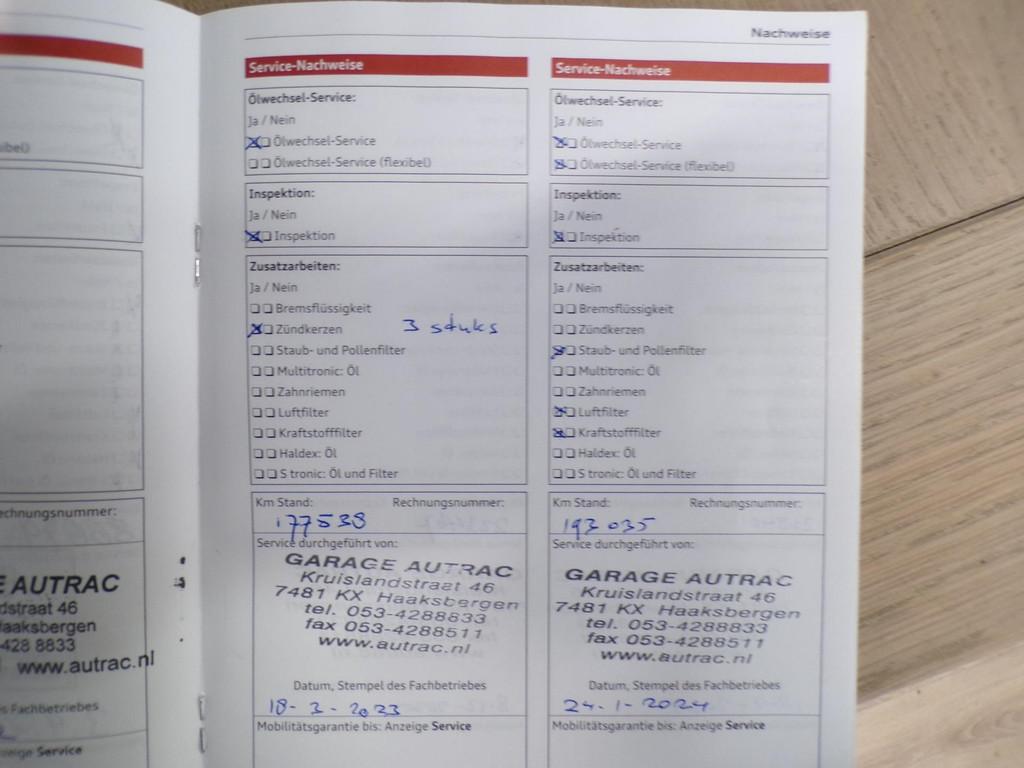 Nachweise
ibel)
echnungsnummer:
E AUTRAC
dstraat 46
aaksbergen
-428 8833
www.autrac.nl
s Fachbetriebes
zeige Service
Service-Nachweise
Ölwechsel-Service:
Ja / Nein
Ölwechsel-Service
Ölwechsel-Service (flexibel)
Inspektion:
Ja / Nein
Inspektion
Zusatzarbeiten:
Ja / Nein
Bremsflüssigkeit
Zündkerzen 3 stuks
Staub- und Pollenfilter
Multitronic: Öl
Zahnriemen
Luftfilter
Kraftstofffilter
Haldex: Öl
S tronic: Öl und Filter
Km Stand: Rechnungsnummer:
177538
Service durchgeführt von:
GARAGE AUTRAC
Kruislandstraat 46
7481 KX Haaksbergen
tel. 053-4288833
fax 053-4288511
www.autrac.nl
Datum, Stempel des Fachbetriebes
18-3-2033
Mobilitätsgarantie bis: Anzeige Service
Service-Nachweise
Ölwechsel-Service:
Ja / Nein
Ölwechsel-Service
Ölwechsel-Service (flexibel)
Inspektion:
Ja / Nein
Inspektion
Zusatzarbeiten:
Ja / Nein
Bremsflüssigkeit
Zündkerzen
Staub- und Pollenfilter
Multitronic: Öl
Zahnriemen
Luftfilter
Kraftstofffilter
Haldex: Öl
S tronic: Öl und Filter
Km Stand: Rechnungsnummer:
193035
Service durchgeführt von:
GARAGE AUTRAC
Kruislandstraat 46
7481 KX Haaksbergen
tel. 053-4288833
fax 053-4288511
www.autrac.nl
Datum, Stempel des Fachbetriebes
24-1-2024
Mobilitätsgarantie bis: Anzeige Service